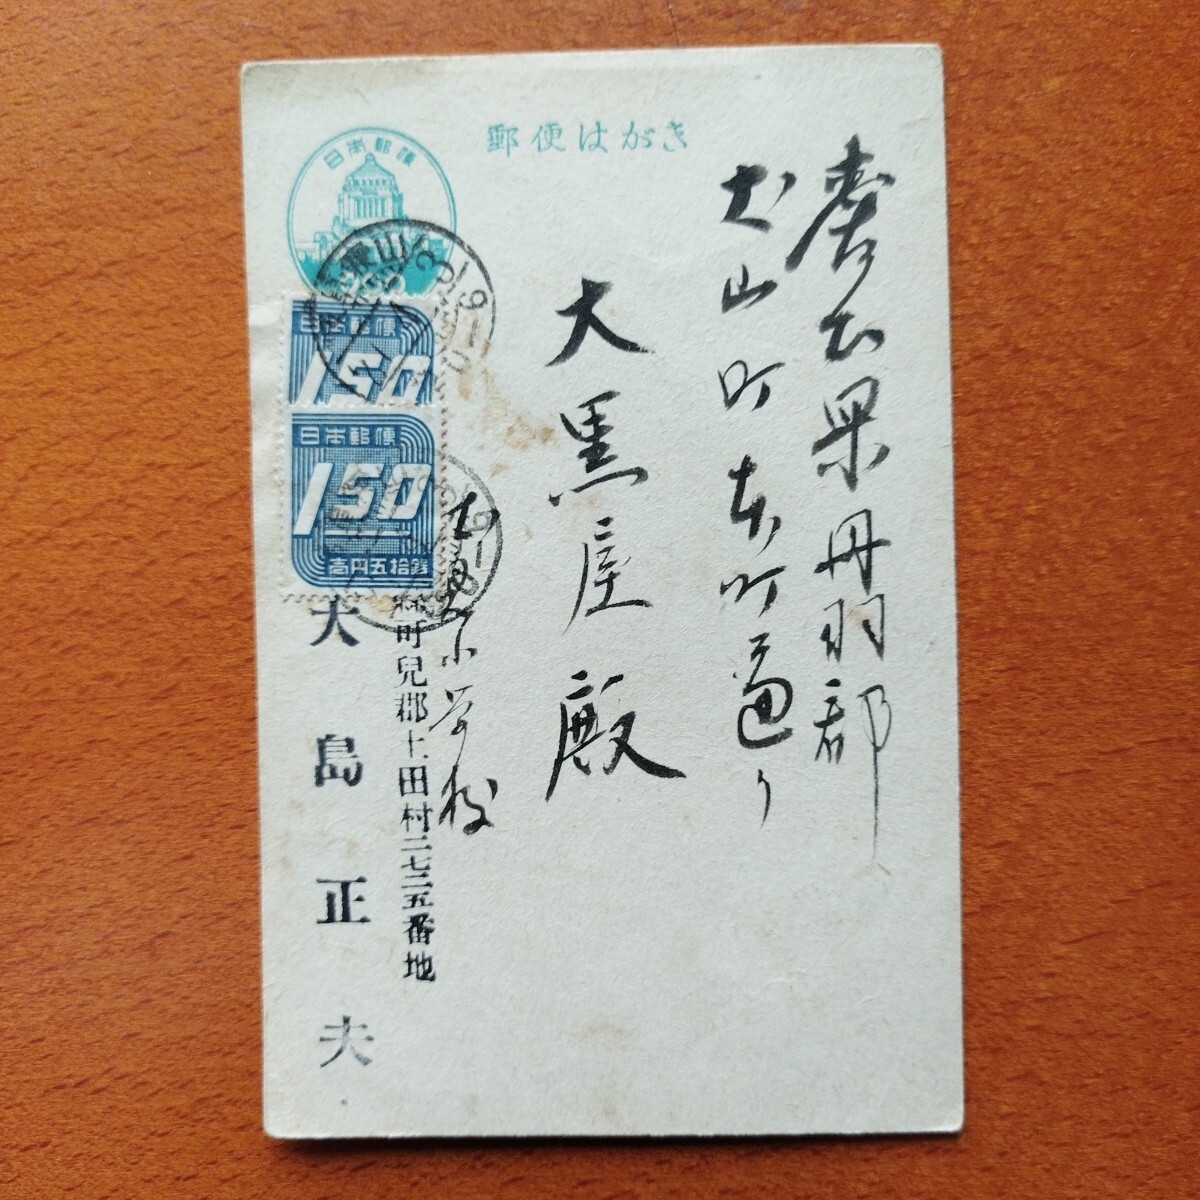 郵便はがき
日本郵便
愛知県丹羽郡
犬山町本町通り
大黒屋殿
日本郵便
150
日本郵便
150
壱円五拾銭
小学校
可兒郡土田村二七二五番地
大島正夫